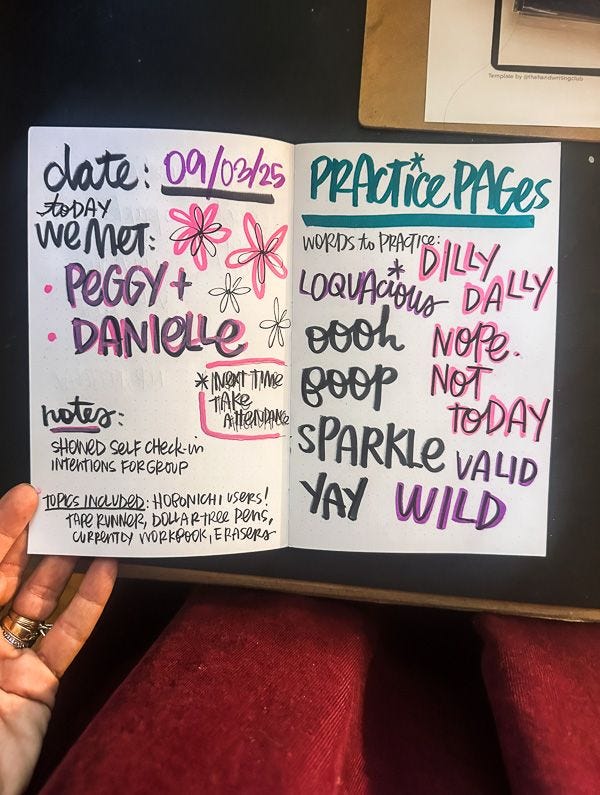 Template by @thehandwritingclub
date: 09/03/25
toDAY
We Met:
• PeGGY +
• DANielle
* NEXT TIME
TAKE
AtteNDANCE
notes:
SHOWED SELF CHECK-iN
INTENTIONS FOR GROUP
TOPICS INCLUDED: HOBONICHI USERS!
TAPE RUNNER, DOLLAR TREE PENS,
CURRENTLY WORKBOOK, ERASERS
PRActice PAGes
WORDS to PRACTICE:
LOQUAcious
DILLY
DALLY
oooh
BOOP
NOPe.
NOT
toDAY
SPARKLe
VALID
YAY
WILD